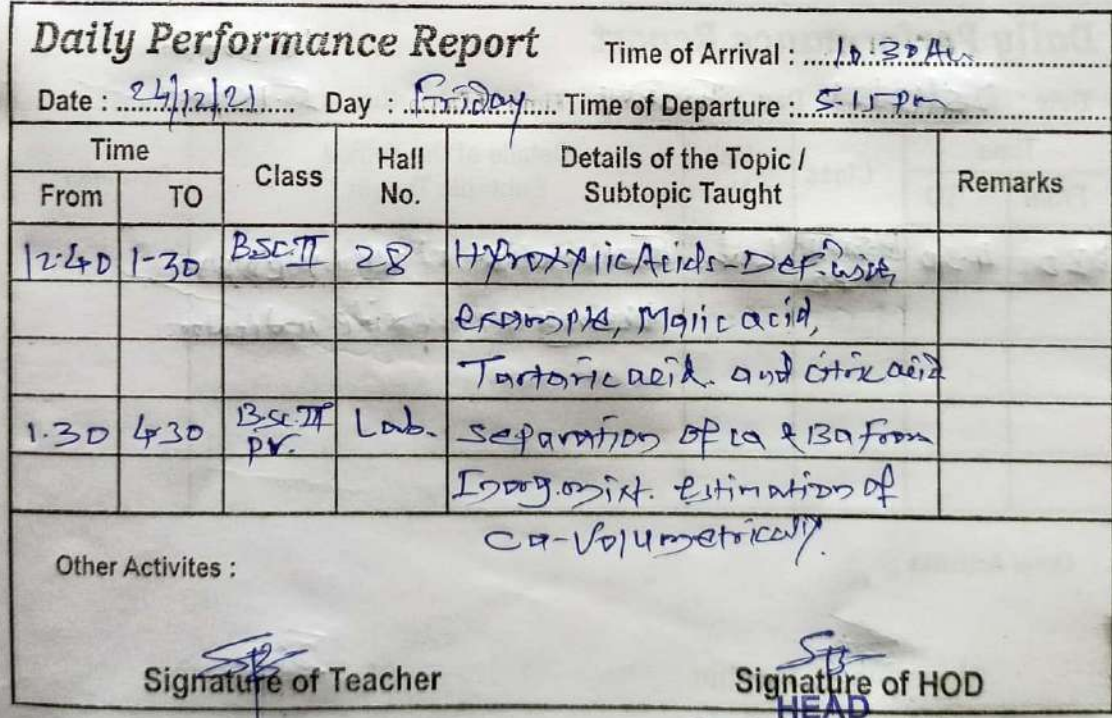 Daily Performance Report Time of Arrival : 10:30 Am
Date : 24/12/21 Day : Friday Time of Departure : 5-15 pm
Time Class Hall No. Details of the Topic / Subtopic Taught Remarks
From TO
12.40 1-30 B.Sc.II 28 Hydroxylic Acids-
example, Malic acid,
Tartaric acid. and citric acid
1.30 4.30 B.Sc.III pr. Lab. separation of ca & Ba from
Inorg. mixt. estimation of
Ca-Volumetrically.
Other Activites :
Signature of Teacher Signature of HOD
HEAD